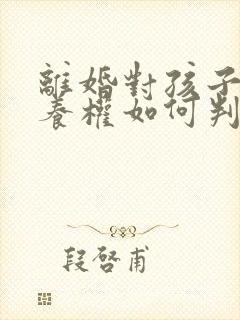 離婚對孩子
養權如何判
段啓甫